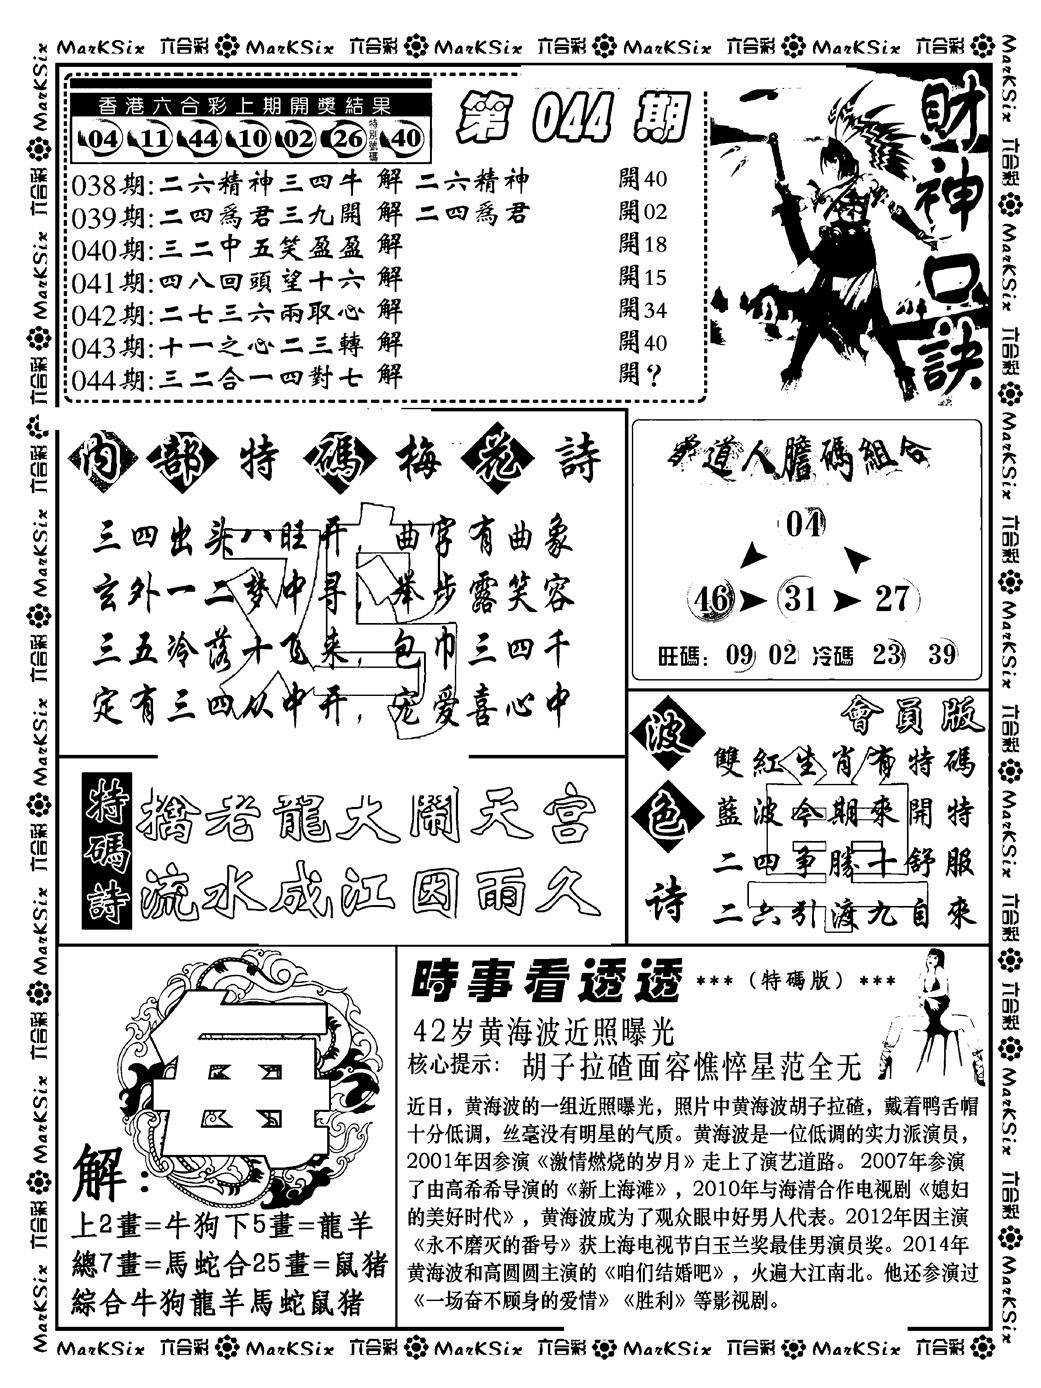 MarKSix 六合彩 MarKSix 六合彩 MarKSix 六合彩 MarKSix 六合彩 MarKSix 六合彩
香港六合彩上期開獎結果
04 11 44 10 02 26 特別號碼 40
第 044 期
財神口訣
038期:二六精神三四牛 解 二六精神 開40
039期:二四爲君三九開 解 二四爲君 開02
040期:三二中五笑盈盈 解 開18
041期:四八回頭望十六 解 開15
042期:二七三六兩取心 解 開34
043期:十一之心二三轉 解 開40
044期:三二合一四對七 解 開?
內部特碼梅花詩
鸡
三四出头八旺开,曲字有曲象
玄外一二梦中寻,举步露笑容
三五冷落十飞来,包巾三四千
定有三四从中开,宠爱喜心中
道人膽碼組合
04
46 31 27
旺碼: 09 02 冷碼 23 39
特碼詩
擒老龍大鬧天宮
流水成江因雨久
波色诗
會員版
雙紅生肖有特碼
藍波今期來開特
二四爭勝十舒服
二六引渡九自來
解:
上2畫=牛狗下5畫=龍羊
總7畫=馬蛇合25畫=鼠猪
綜合牛狗龍羊馬蛇鼠猪
時事看透透 ***(特碼版)***
42岁黄海波近照曝光
核心提示: 胡子拉碴面容憔悴星范全无
近日，黄海波的一组近照曝光，照片中黄海波胡子拉碴，戴着鸭舌帽
十分低调，丝毫没有明星的气质。黄海波是一位低调的实力派演员，
2001年因参演《激情燃烧的岁月》走上了演艺道路。 2007年参演
了由高希希导演的《新上海滩》，2010年与海清合作电视剧《媳妇
的美好时代》，黄海波成为了观众眼中好男人代表。2012年因主演
《永不磨灭的番号》获上海电视节白玉兰奖最佳男演员奖。2014年
黄海波和高圆圆主演的《咱们结婚吧》，火遍大江南北。他还参演过
《一场奋不顾身的爱情》《胜利》等影视剧。
MarKSix 六合彩 MarKSix 六合彩 MarKSix 六合彩 MarKSix 六合彩 MarKSix 六合彩